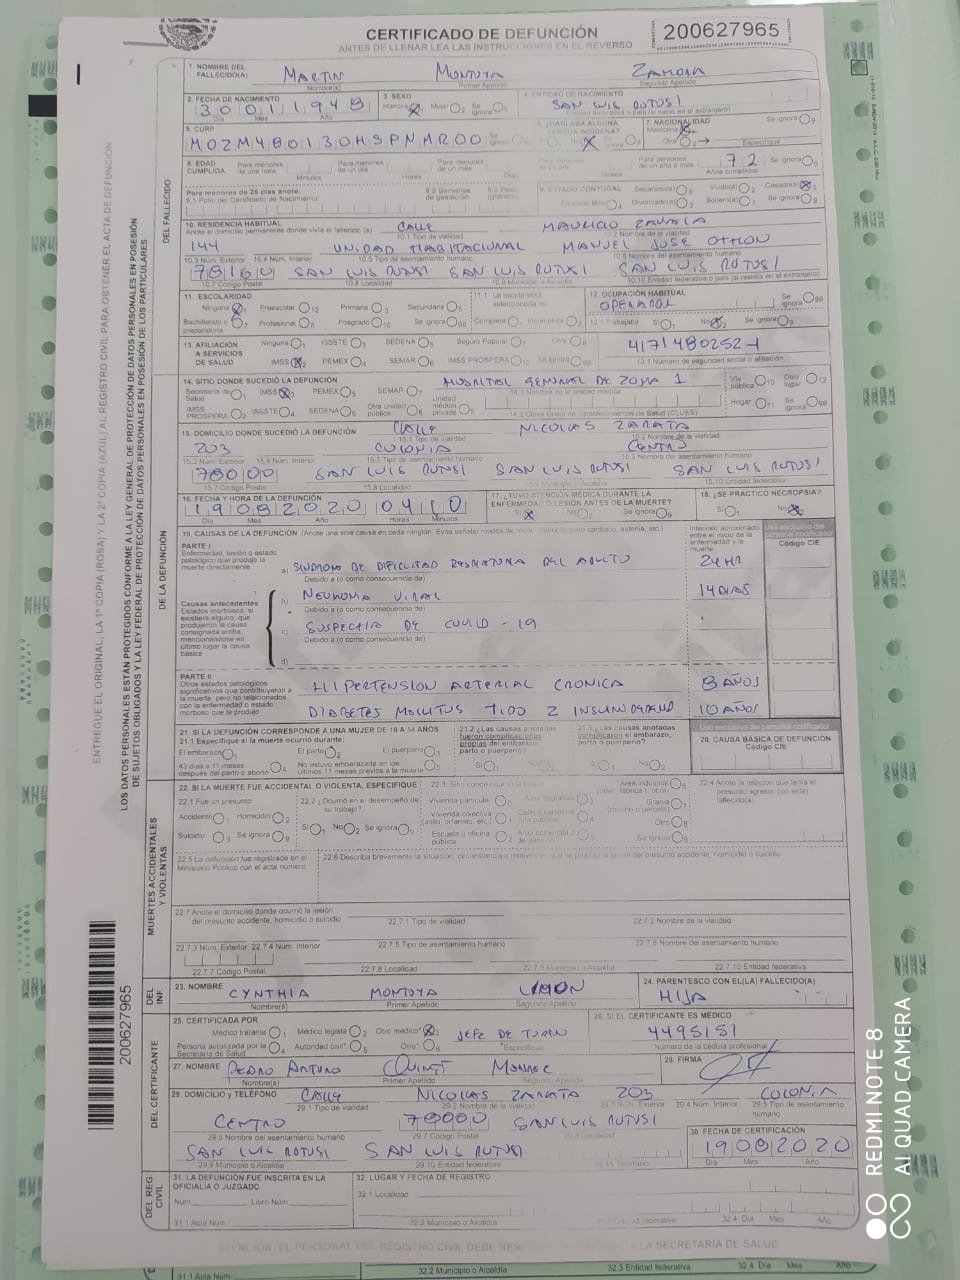 CERTIFICADO DE DEFUNCIÓN
ANTES DE LLENAR LEA LAS INSTRUCCIONES EN EL REVERSO
200627965
1. NOMBRE DEL FALLECIDO(A) MARTIN MONTOYA ZAMORA
Nombre(s) Primer Apellido Segundo Apellido
2. FECHA DE NACIMIENTO 30011948 3. SEXO Hombre Mujer Se ignora 4. ENTIDAD DE NACIMIENTO SAN LUIS POTOSI
Día Mes Año
5. CURP MOZM480130HSPNMR00 7. NACIONALIDAD Mexicana Otra Especifique Se ignora
6. ¿HABLABA ALGUNA LENGUA INDÍGENA?
8. EDAD CUMPLIDA Para menores de una hora Minutos Para menores de un día Horas Para menores de un mes Para personas de un año o más 72 Años cumplidos Se ignora
Para menores de 28 días anote:
8.1 Folio del Certificado de Nacimiento: 8.2 Semanas de gestación 9. ESTADO CONYUGAL Separado(a) Viudo(a) Casado(a)
Divorciado(a) Soltero(a) Se ignora
10. RESIDENCIA HABITUAL CALLE MAURICIO ZAVALA
Anote el domicilio permanente donde vivía el fallecido (a) 10.1 Tipo de vialidad 10.2 Nombre de la vialidad
144 UNIDAD HABITACIONAL MANUEL JOSE OTHON
10.3 Núm. Exterior 10.4 Núm. Interior 10.5 Tipo de asentamiento humano 10.6 Nombre del asentamiento humano
78160 SAN LUIS POTOSI SAN LUIS POTOSI SAN LUIS POTOSI
10.7 Código Postal 10.8 Localidad 10.9 Municipio o Alcaldía 10.10 Entidad federativa (o país si residía en el extranjero)
11. ESCOLARIDAD 12. OCUPACIÓN HABITUAL OPERADOR Se ignora
Ninguna Preescolar Primaria Secundaria
Bachillerato o preparatoria Profesional Posgrado Se ignora Completa Incompleta 12.1 Trabajaba Sí No Se ignora
13. AFILIACIÓN A SERVICIOS DE SALUD Ninguna ISSSTE SEDENA Seguro Popular Otra
IMSS PEMEX SEMAR IMSS PROSPERA Se ignora 13.1 Número de seguridad social o afiliación
14. SITIO DONDE SUCEDIÓ LA DEFUNCIÓN HOSPITAL GENERAL DE ZONA 1
Secretaría de Salud IMSS PEMEX SEMAR Unidad médica privada 14.1 Nombre de la unidad médica Vía pública Otro lugar
IMSS PROSPERA ISSSTE SEDENA Otra unidad pública 14.2 Clave Única de Establecimientos de Salud (CLUES) Hogar Se ignora
15. DOMICILIO DONDE SUCEDIÓ LA DEFUNCIÓN CALLE NICOLAS ZAPATA
15.1 Tipo de vialidad 15.2 Nombre de la vialidad
203 COLONIA CENTRO
15.3 Núm. Exterior 15.4 Núm. Interior 15.5 Tipo de asentamiento humano 15.6 Nombre del asentamiento humano
78000 SAN LUIS POTOSI SAN LUIS POTOSI SAN LUIS POTOSI
15.7 Código Postal 15.8 Localidad 15.9 Municipio o Alcaldía 15.10 Entidad federativa
16. FECHA Y HORA DE LA DEFUNCIÓN 17. ¿TUVO ATENCIÓN MÉDICA DURANTE LA ENFERMEDAD O LESIÓN ANTES DE LA MUERTE? 18. ¿SE PRACTICÓ NECROPSIA?
19082020 0410 Sí No Se ignora Sí No
Día Mes Año Horas Minutos
19. CAUSAS DE LA DEFUNCIÓN (Anote una sola causa en cada renglón. Evite señalar modos de morir, ejemplo: paro cardíaco, astenia, etc.)
Intervalo aproximado entre el inicio de la enfermedad y la muerte Código CIE
PARTE I
Enfermedad, lesión o estado patológico que produjo la muerte directamente
a) SINDROME DE DIFICULTAD RESPIRATORIA DEL ADULTO 24 HR
Debido a (o como consecuencia de)
b) NEUMONIA VIRAL 14 DIAS
Debido a (o como consecuencia de)
c) SOSPECHA DE COVID-19
Debido a (o como consecuencia de)
d)
Causas antecedentes
Estados morbosos, si existiera alguno, que produjeron la causa consignada arriba, mencionándose en último lugar la causa básica
PARTE II
Otros estados patológicos significativos que contribuyeron a la muerte, pero no relacionados con la enfermedad o estado morboso que la produjo
HIPERTENSION ARTERIAL CRONICA 8 AÑOS
DIABETES MELLITUS TIPO 2 10 AÑOS
21. SI LA DEFUNCIÓN CORRESPONDE A UNA MUJER DE 10 A 54 AÑOS
21.1 Especifique si la muerte ocurrió durante:
El embarazo El parto El puerperio
43 días a 11 meses después del parto o aborto No estuvo embarazada en los últimos 11 meses previos a la muerte
21.2 ¿Las causas anotadas fueron complicaciones propias del embarazo, parto o puerperio? Sí No
21.3 ¿Las causas anotadas complicaron el embarazo, parto o puerperio? Sí No
20. CAUSA BÁSICA DE DEFUNCIÓN
Código CIE
22. SI LA MUERTE FUE ACCIDENTAL O VIOLENTA, ESPECIFIQUE
22.1 Fue un presunto
Accidente Homicidio
Suicidio Se ignora
22.2 ¿Ocurrió en el desempeño de su trabajo?
Sí No Se ignora
22.3 Sitio donde ocurrió la lesión
Vivienda particular
Vivienda colectiva (asilo, orfanato, etc.)
Escuela u oficina pública
Otro
Se ignora
22.4 Anote la relación que tenía el presunto agresor con el(la) fallecido(a)
22.5 La defunción fue registrada en el Ministerio Público con el acta número
22.6 Describa brevemente la situación, circunstancia o motivos en que se produjo la lesión del presunto accidente, homicidio o suicidio
22.7 Anote el domicilio donde ocurrió la lesión del presunto accidente, homicidio o suicidio 22.7.1 Tipo de vialidad 22.7.2 Nombre de la vialidad
22.7.3 Núm. Exterior 22.7.4 Núm. Interior 22.7.5 Tipo de asentamiento humano 22.7.6 Nombre del asentamiento humano
22.7.7 Código Postal 22.7.8 Localidad 22.7.9 Municipio o Alcaldía 22.7.10 Entidad federativa
23. NOMBRE CYNTHIA MONTOYA 24. PARENTESCO CON EL(LA) FALLECIDO(A)
HIJA
Nombre(s) Primer Apellido Segundo Apellido
25. CERTIFICADA POR 26. SI EL CERTIFICANTE ES MÉDICO
Médico tratante Médico legista Otro médico JEFE DE TURNO 4495151
Persona autorizada por la Secretaría de Salud Autoridad civil Otro Especifique Número de la cédula profesional
27. NOMBRE PEDRO ARTURO 28. FIRMA
Nombre(s) Primer Apellido Segundo Apellido
29. DOMICILIO Y TELÉFONO CALLE NICOLAS ZAPATA 203 COLONIA
29.1 Tipo de vialidad 29.2 Nombre de la vialidad 29.3 Núm. Exterior 29.4 Núm. Interior 29.5 Tipo de asentamiento humano
CENTRO 78000 SAN LUIS POTOSI
29.6 Nombre del asentamiento humano 29.7 Código Postal 29.8 Localidad
SAN LUIS POTOSI SAN LUIS POTOSI
29.9 Municipio o Alcaldía 29.10 Entidad federativa 29.11 Teléfono
30. FECHA DE CERTIFICACIÓN
19082020
Día Mes Año
31. LA DEFUNCIÓN FUE INSCRITA EN LA OFICIALÍA O JUZGADO 32. LUGAR Y FECHA DE REGISTRO
Núm. Libro Núm. 32.1 Localidad
31.1 Acta Núm. 32.2 Municipio o Alcaldía 32.3 Entidad federativa 32.4 Día Mes Año
31.1 Acta Núm. 32.2 Municipio o Alcaldía 32.3 Entidad federativa 32.4 Día Mes Año
DEL FALLECIDO
DE LA DEFUNCIÓN
MUERTES ACCIDENTALES Y VIOLENTAS
DEL INF.
DEL CERTIFICANTE
DEL REG. CIVIL
ENTREGUE EL ORIGINAL, LA 1ª COPIA (ROSA) Y LA 2ª COPIA (AZUL) AL REGISTRO CIVIL PARA OBTENER EL ACTA DE DEFUNCIÓN
LOS DATOS PERSONALES ESTÁN PROTEGIDOS CONFORME A LA LEY GENERAL DE PROTECCIÓN DE DATOS PERSONALES EN POSESIÓN DE SUJETOS OBLIGADOS Y LA LEY FEDERAL DE PROTECCIÓN DE DATOS PERSONALES EN POSESIÓN DE LOS PARTICULARES
200627965
REDMI NOTE 8
AI QUAD CAMERA